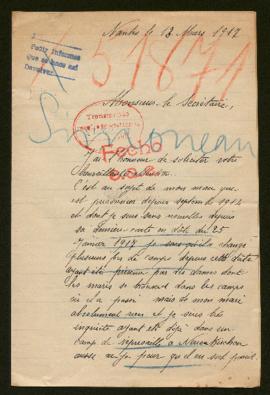 Nantes le 13 Mars 1917
Pedir Informes
que se hace así
51871
Monsieur le Secrétaire,
Transmitido
Simoneau
Fecho
J'ai l'honneur de solliciter votre
bienveillante
C'est au sujet de mon mari que
est prisonnier depuis septembre 1914
et dont je suis sans nouvelles depuis
sa dernière carte en date du 25
Janvier 1917 je sais qu'il a changé
plusieurs fois de camps depuis cette date
ayant été par des dames dont
les maris se trouvent dans les camps
où il a passé mais de mon mari
absolument rien et je suis très
inquiète ayant été déjà dans un
camp de représaille à
aussi je que il en soit pareil.